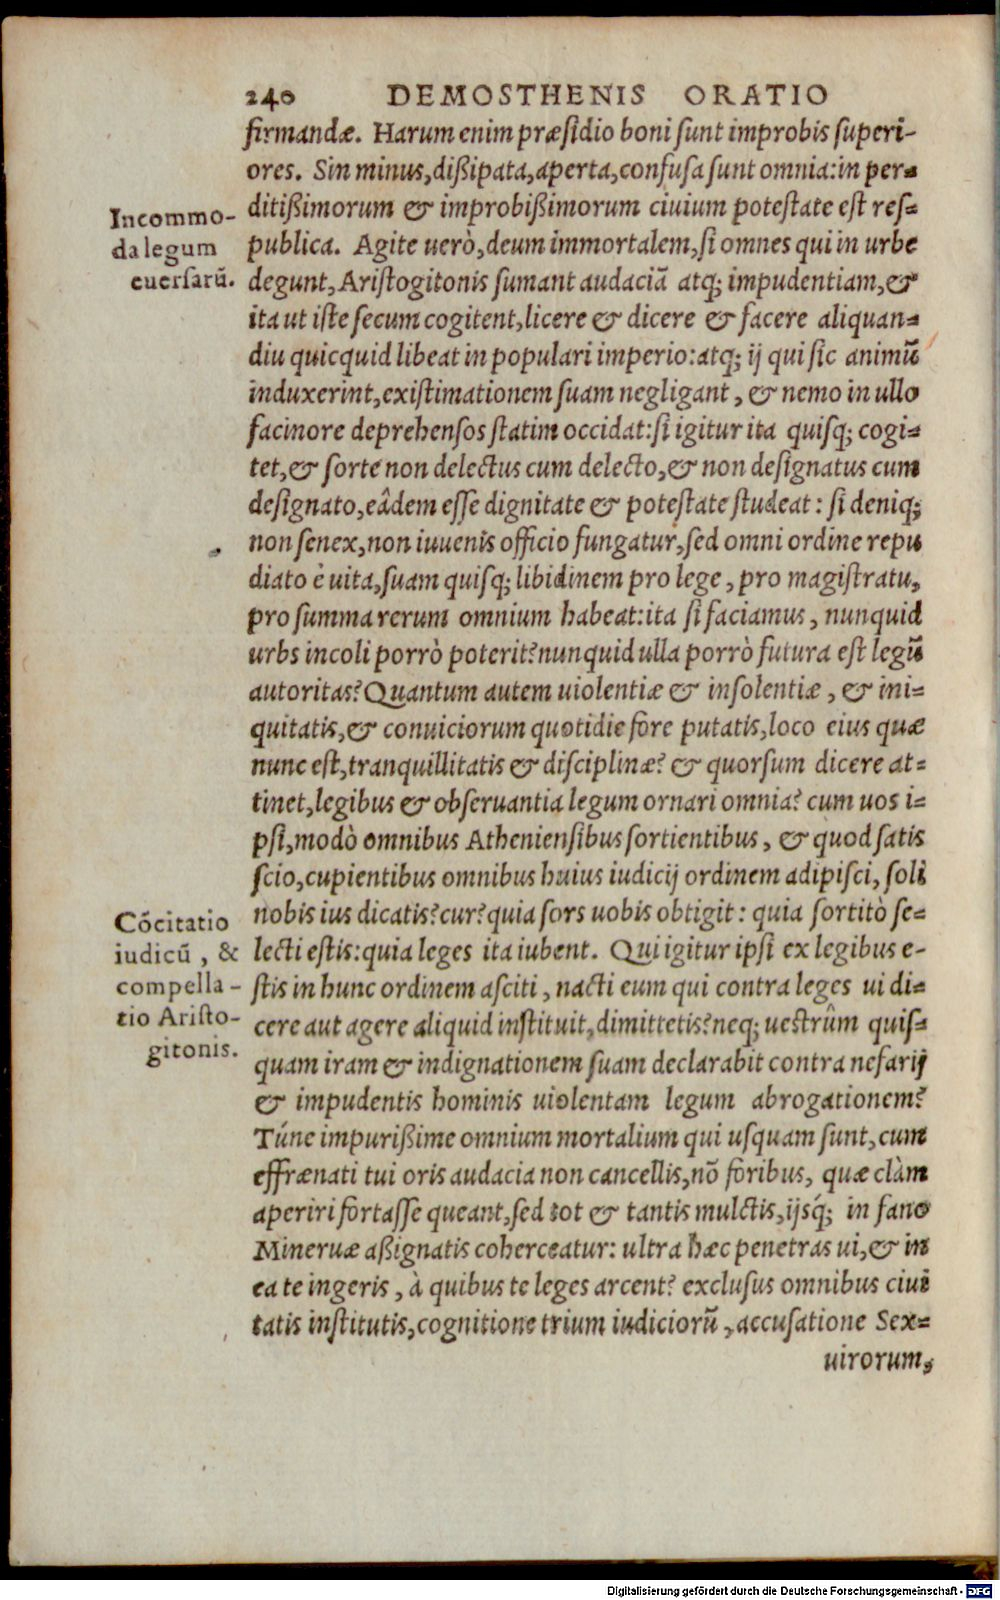 240 DEMOSTHENIS ORATIO
firmandæ. Harum enim præsidio boni sunt improbis superi-
ores. Sin minus, dißipata, aperta, confusa sunt omnia: in per-
ditißimorum & improbißimorum ciuium potestate est res-
publica. Agite uerò, deum immortalem, si omnes qui in urbe
degunt, Aristogitonis sumant audaciã atq; impudentiam, &
ita ut iste secum cogitent, licere & dicere & facere aliquan-
diu quicquid libeat in populari imperio: atq; ij qui sic animũ
induxerint, existimationem suam negligant, & nemo in ullo
facinore deprehensos statim occidat: si igitur ita quisq; cogi-
tet, & sorte non delectus cum delecto, & non designatus cum
designato, eâdem esse dignitate & potestate studeat: si deniq;
non senex, non iuuenis officio fungatur, sed omni ordine repu
diato è uita, suam quisq; libidinem pro lege, pro magistratu,
pro summa rerum omnium habeat: ita si faciamus, nunquid
urbs incoli porrò poterit? nunquid ulla porrò futura est legũ
autoritas? Quantum autem uiolentiæ & insolentiæ, & ini-
quitatis, & conuiciorum quotidie fore putatis, loco eius quæ
nunc est, tranquillitatis & disciplinæ? & quorsum dicere at-
tinet, legibus & obseruantia legum ornari omnia? cum uos i-
psi, modò omnibus Atheniensibus sortientibus, & quod satis
scio, cupientibus omnibus huius iudicij ordinem adipisci, soli
nobis ius dicatis? cur? quia sors uobis obtigit: quia sortitò se-
lecti estis: quia leges ita iubent. Qui igitur ipsi ex legibus e-
stis in hunc ordinem asciti, nacti eum qui contra leges ui di-
cere aut agere aliquid instituit, dimittetis? neq; uestrûm quis-
quam iram & indignationem suam declarabit contra nefarij
& impudentis hominis uiolentam legum abrogationem?
Túne impurißime omnium mortalium qui usquam sunt, cum
effrænati tui oris audacia non cancellis, nõ foribus, quæ clàm
aperiri fortasse queant, sed tot & tantis mulctis, ijsq́; in fano
Mineruæ aßignatis coherceatur: ultra hæc penetras ui, & in
ea te ingeris, à quibus te leges arcent? exclusus omnibus ciui
tatis institutis, cognitione trium iudiciorũ, accusatione Sex-
uirorum,
Incommo-
da legum
euersarũ.
Cõcitatio
iudicũ, &
compella-
tio Aristo-
gitonis.
Digitalisierung gefördert durch die Deutsche Forschungsgemeinschaft - DFG